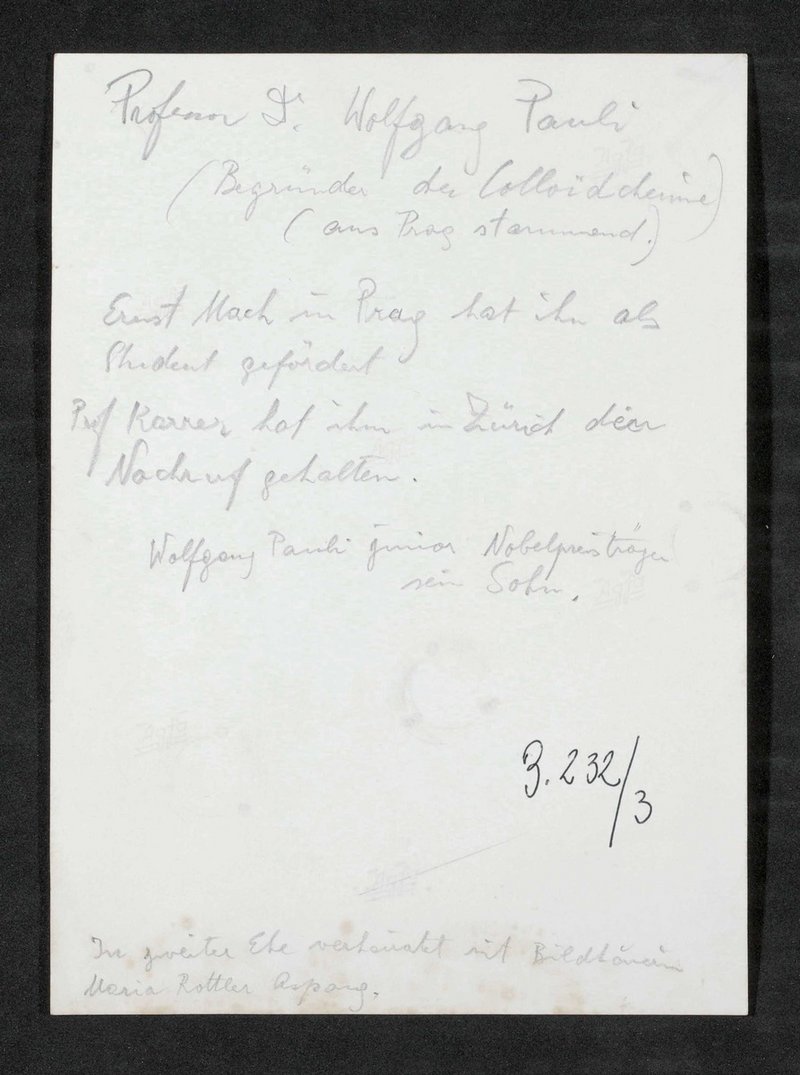 Professor Dr. Wolfgang Pauli
(Begründer der Colloïdchemie)
(aus Prag stammend.)
Ernst Mach in Prag hat ihn als
Student gefördert
Prof Karrer hat ihm in Zürich den
Nachruf gehalten.
Wolfgang Pauli junior Nobelpreisträger
sein Sohn.
3.232/3
In zweiter Ehe verheiratet mit Bildhauerin
Maria Rottler Aspang.